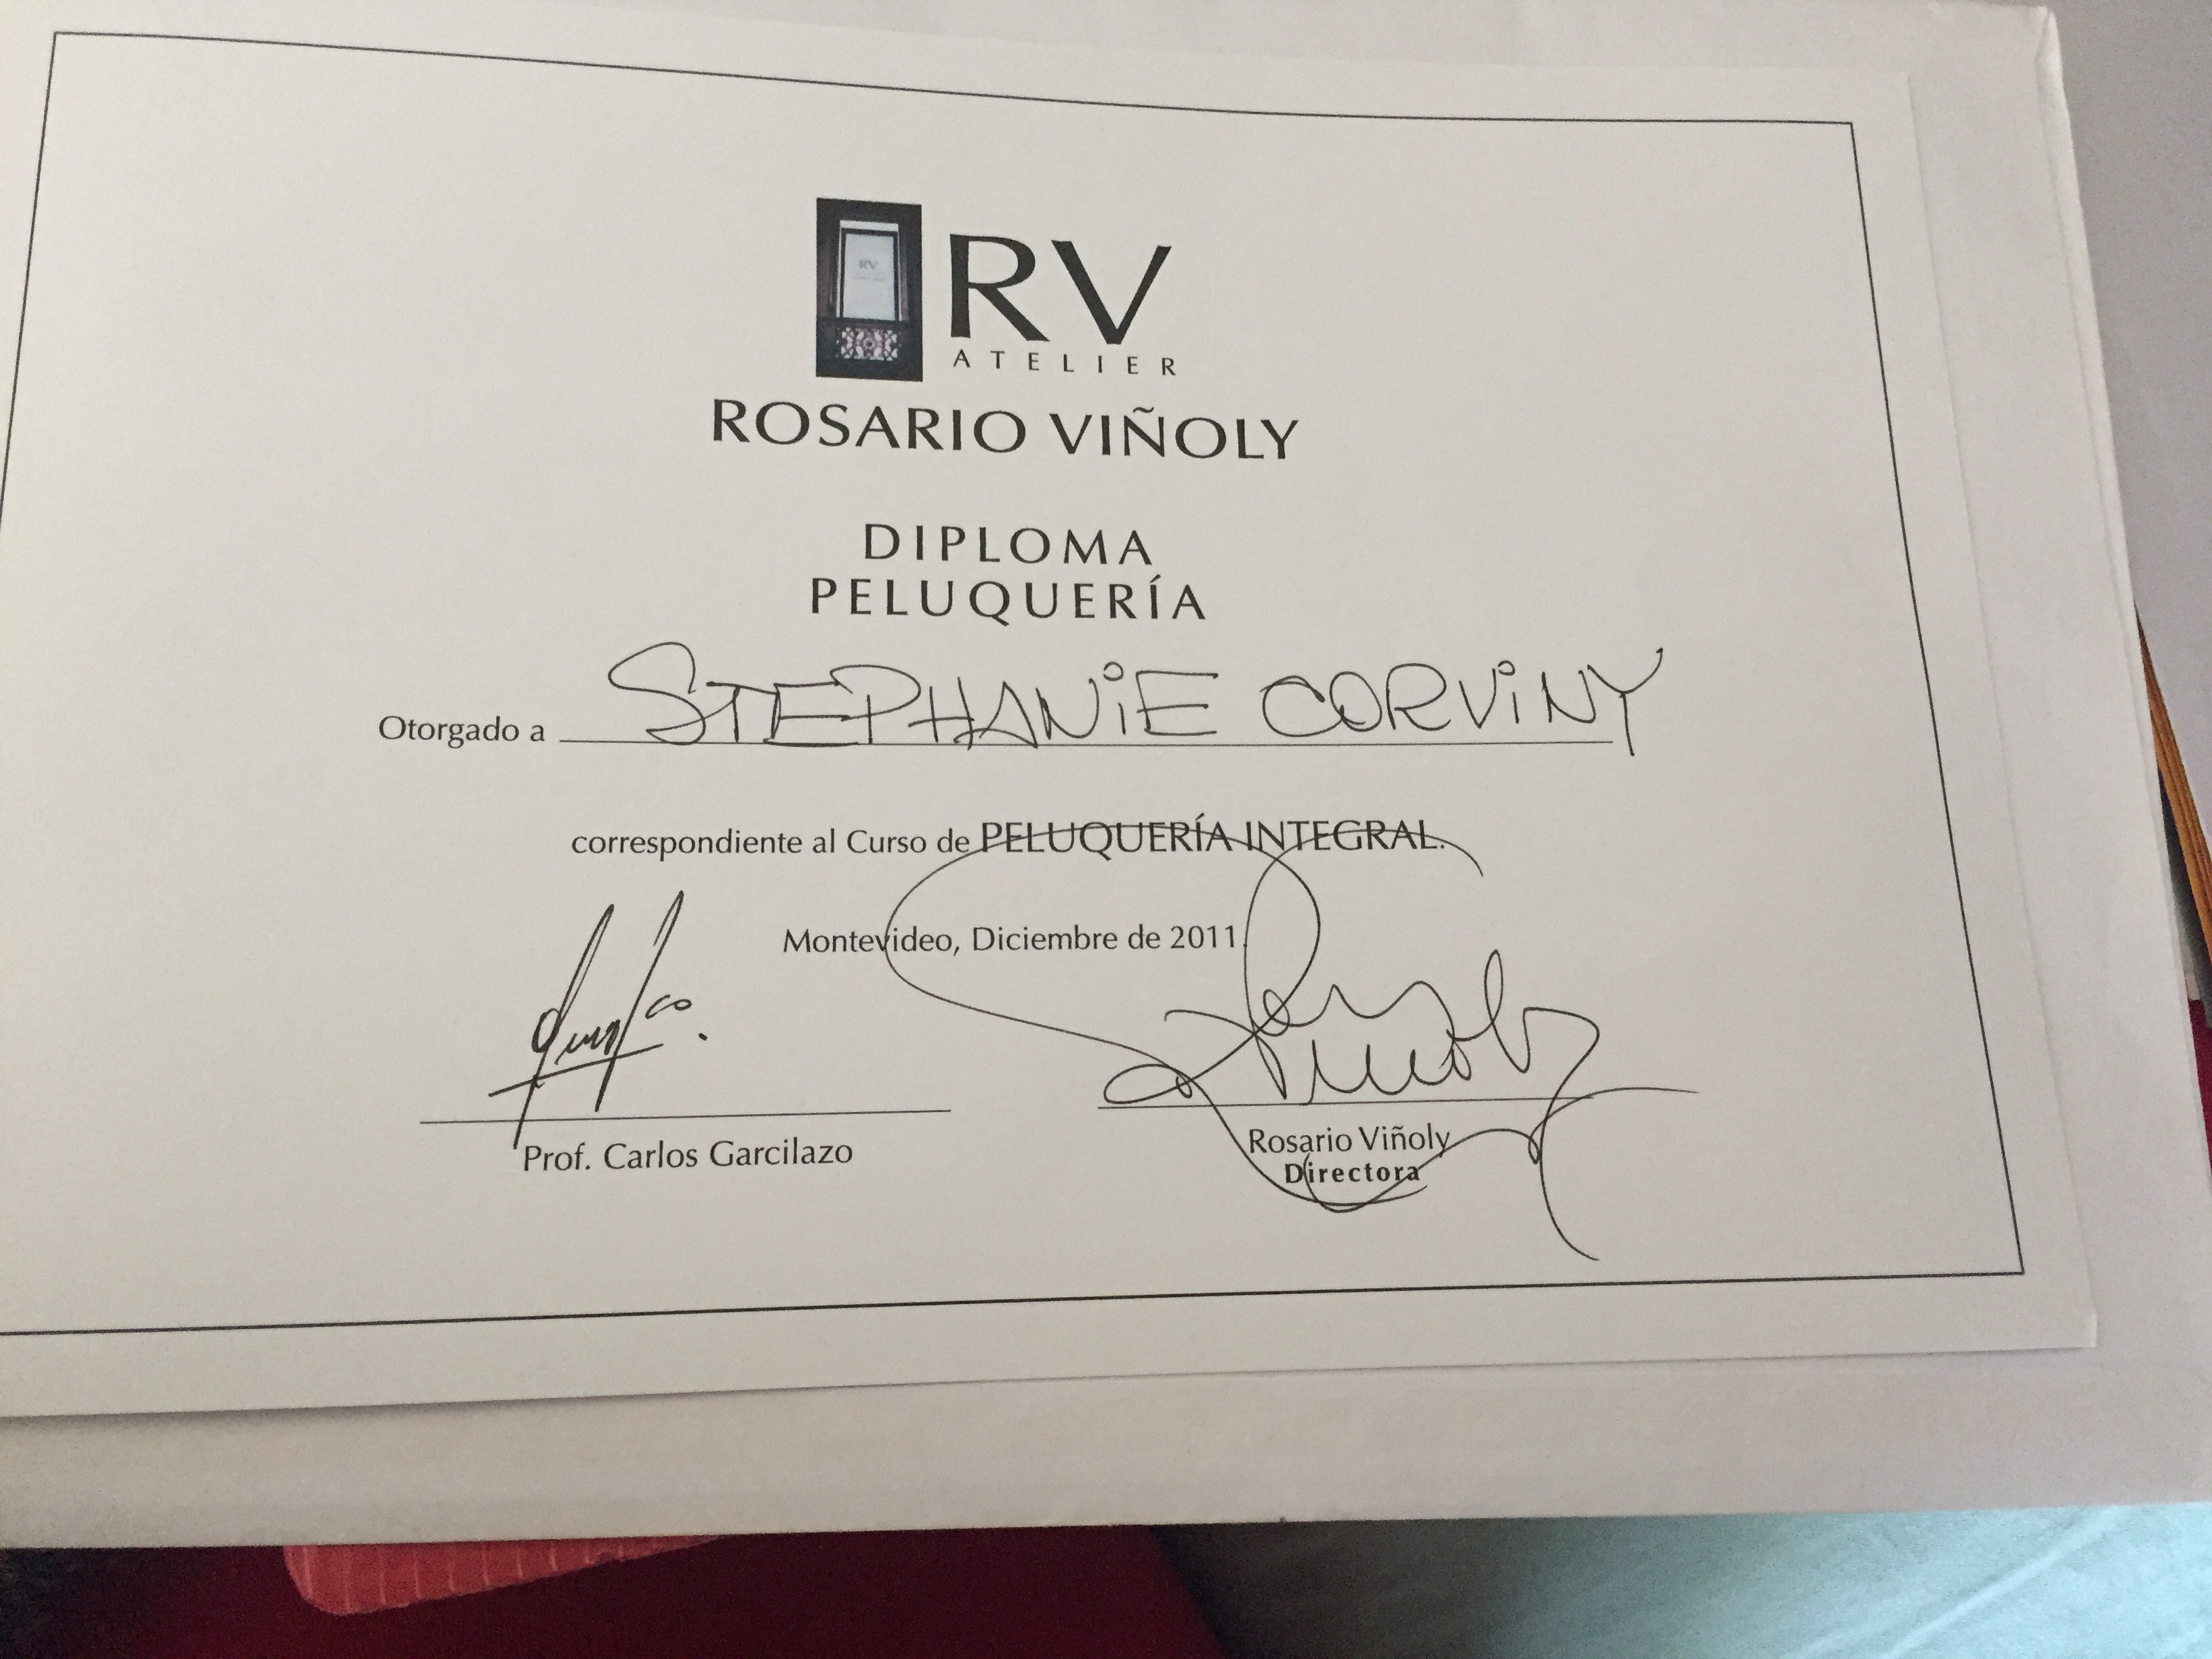 RV
ATELIER
ROSARIO VIÑOLY
DIPLOMA
PELUQUERÍA
Otorgado a STEPHANIE CORVINY
correspondiente al Curso de PELUQUERÍA INTEGRAL.
Montevideo, Diciembre de 2011
Prof. Carlos Garcilazo
Rosario Viñoly
Directora